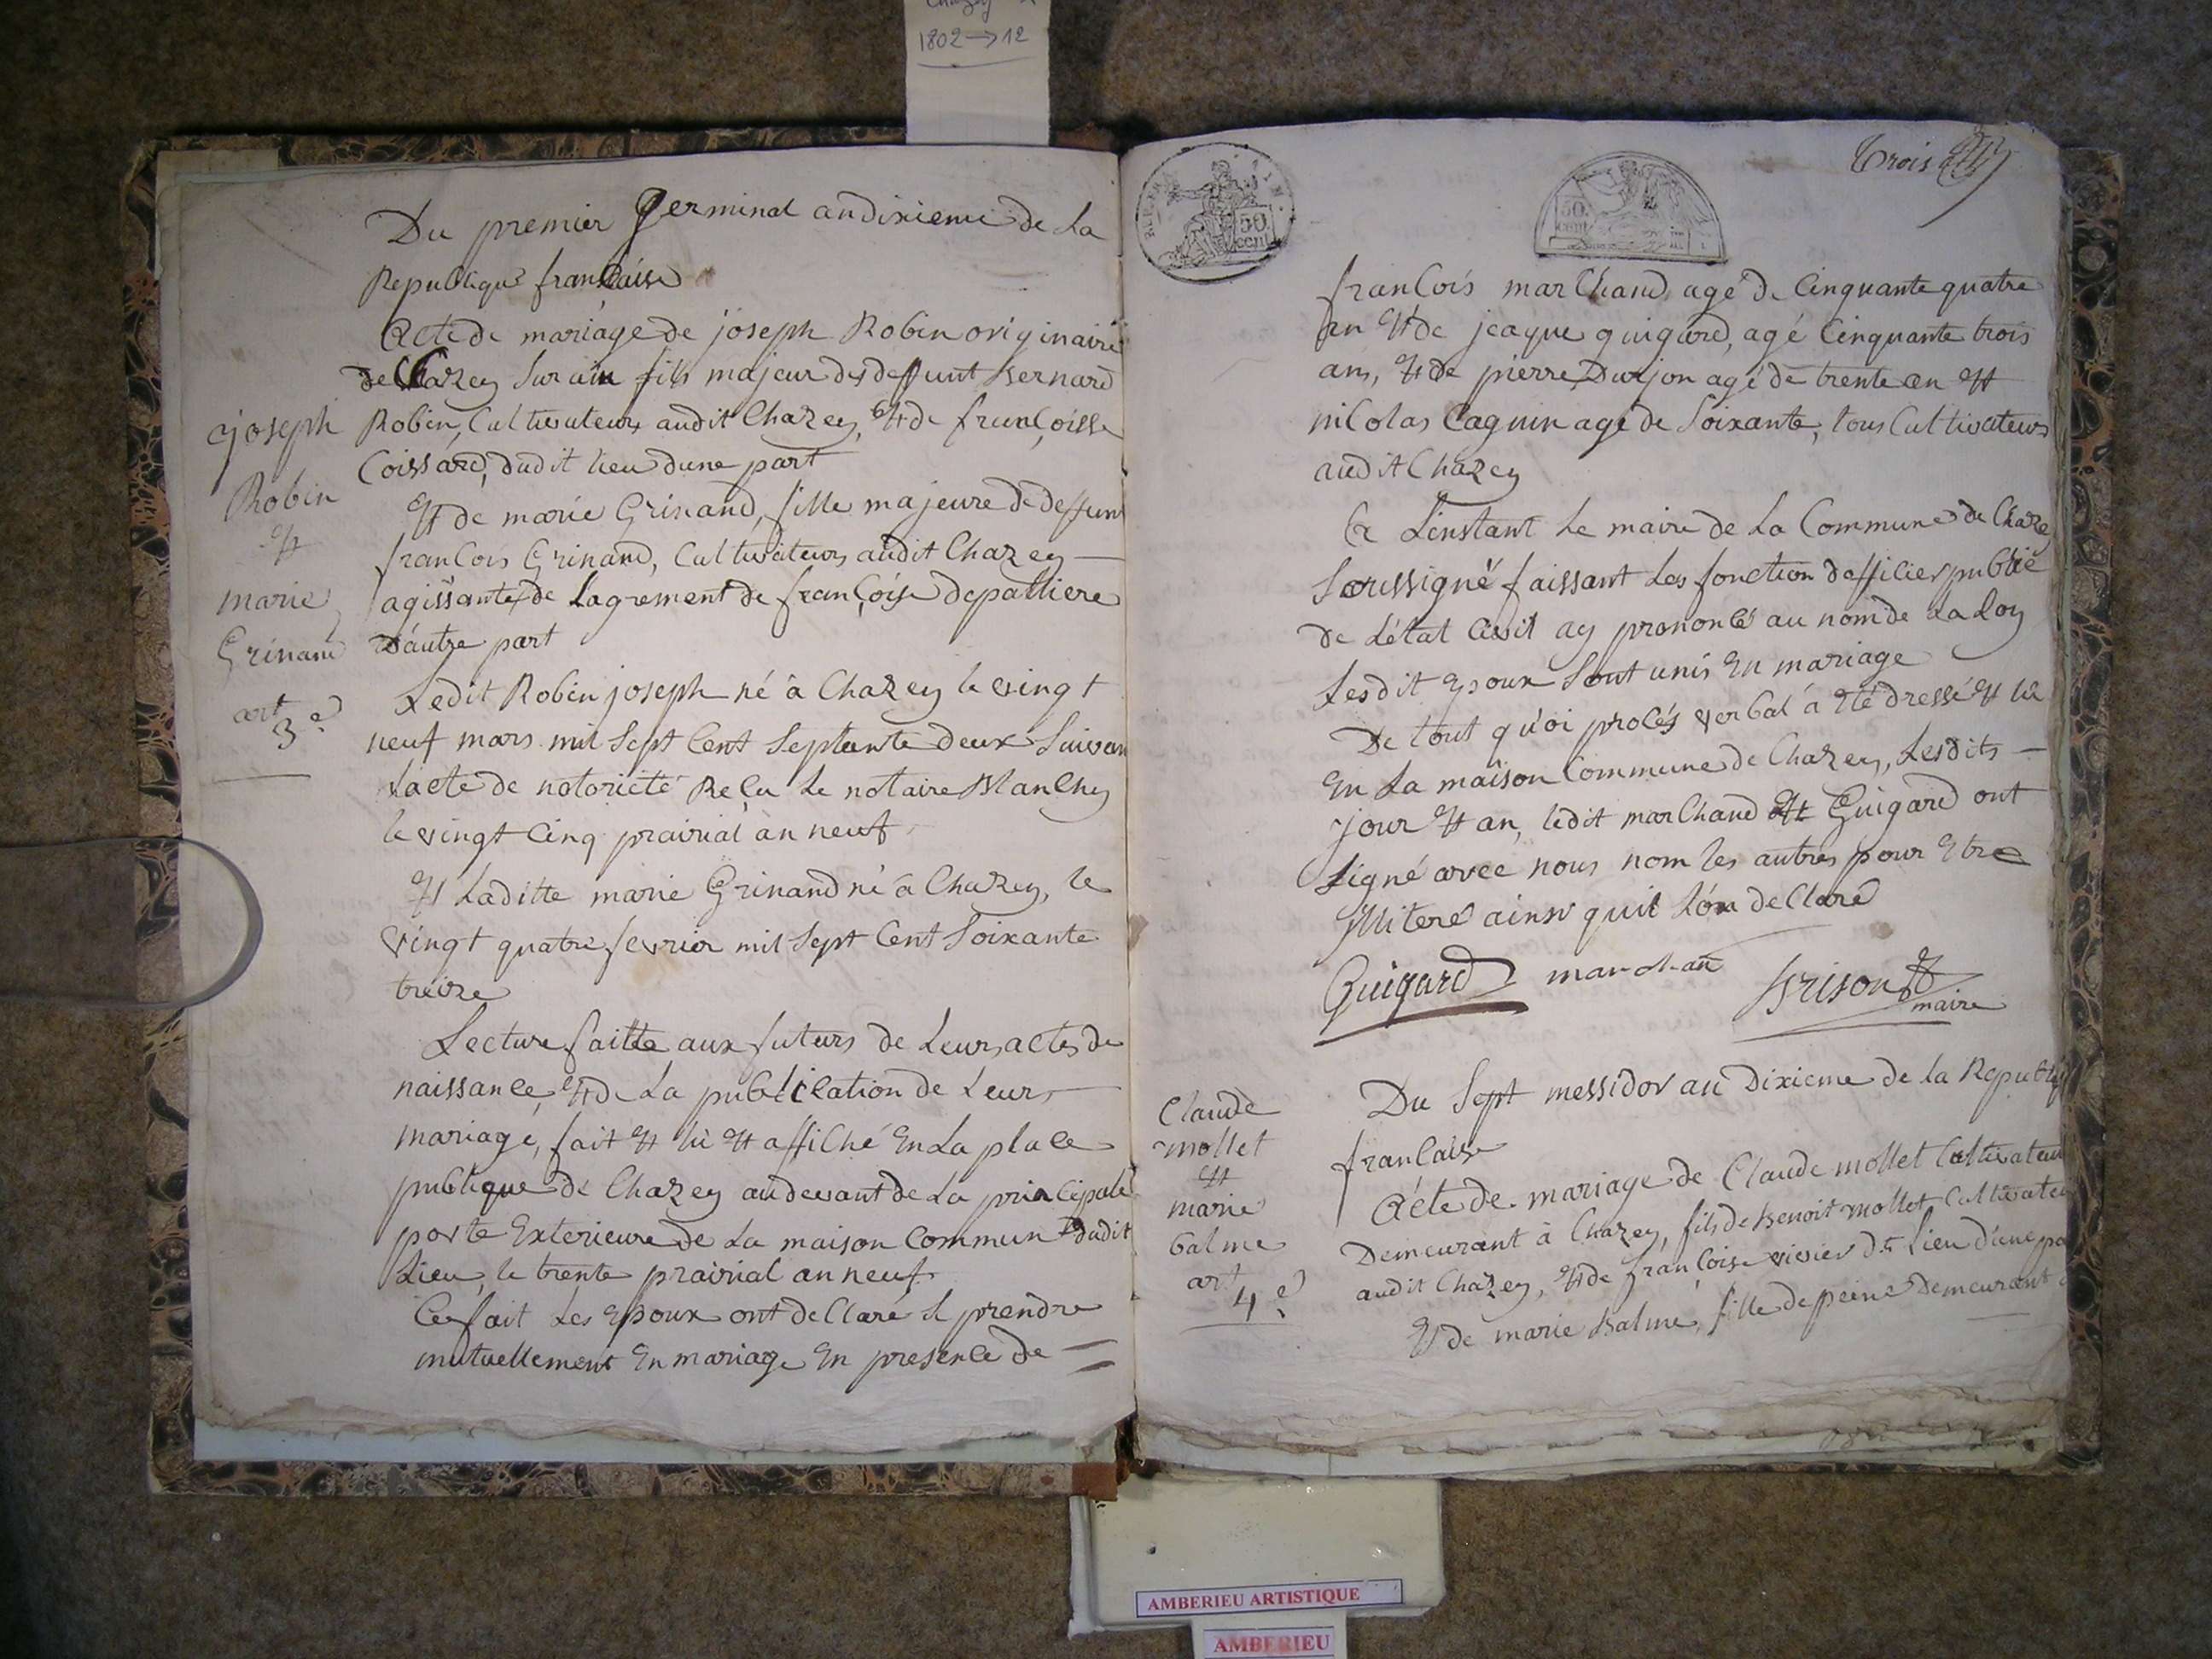 1802→12
Du premier Germinal an dixieme de La
Republique francaise
Acte de mariage de joseph Robin originaire
de Chazey Sur ain fils majeur des deffunt Bernard
Robin, Cultivateur audit Chazey, Et de francoisse
Coissard, dudit lieu dune part
Et de marie Grinand, fille majeure de deffunt
francois Grinand, Cultivateur audit Chazey —
agissante de Lagrement de françoise depalliere
d'autre part
joseph
Robin
Et
marie
Grinand
art
3e
Ledit Robin joseph né à Chazey le vingt
neuf mars mil Sept Cent Septente deux Suivan
Lacte de notorieté Reçu Le notaire Blanchy
le vingt Cinq prairial an neuf
Et Laditte marie Grinand né à Chazey, le
vingt quatre fevrier mil Sept Cent Soixante
treize
Lecture faitte aux futurs de Leurs actes de
naissance, Et de La publication de Leur
mariage, fait Et lù Et affiché En La place
publique de Chazey au devant de La principale
porte Exterieure de La maison Commune dudit
Lieu, le trente prairial an neuf
Ce fait Les Epoux ont declaré se prendre
mutuellement En mariage En presence de
50 cent
50 cent
Trois
francois marchand, agé de Cinquante quatre
an Et de jcaque guigard, agé Cinquante trois
ans, Et de pierre Durjon agé de trente an Et
nicolas Caguin agé de Soixante, tous Cultivateurs
audit Chazey
A Linstant Le maire de La Commune de Chazey
Soussigné faissant Les fonction dofficier public
de L'état Civil ay prononcé au nom de La Loy
Lesdit Epoux Sont unis En mariage
De tout qu'oi procés verbal á Eté dressé Et lù
En La maison Commune de Chazey, Lesdits —
jour Et an, ledit marchand Et Guigard ont
Signé avec nous nom les autres pour Etre
illiteré ainsi quil Lon declaré
Guigard marchan Brison
maire
Claude
mollet
Et
marie
balme
art
4e
Du Sept messidor an Dixieme de la Republiq
francaise
Acte de mariage de Claude mollet Cultivateur
Demeurant à Chazey, fils de Benoit mollet Cultivateu
audit Chazey, Et de françoise vivier dt. Lieu d'une pa
Et de marie Balme, fille de peine Demeurant a
AMBERIEU ARTISTIQUE
AMBERIEU